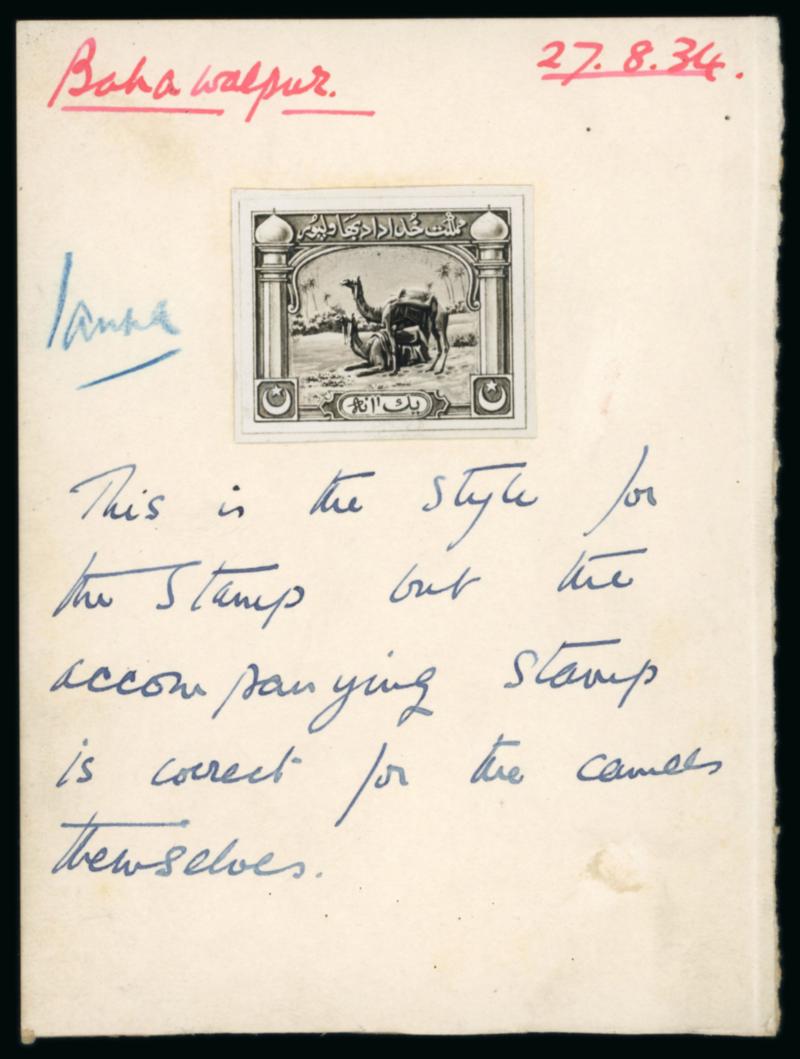 Bahawalpur.
27. 8. 34.
مملكت خداداد بهاولپور
1 anna
يك آنه
This is the style for
the Stamp but the
accompanying stamp
is correct for the camels
themselves.